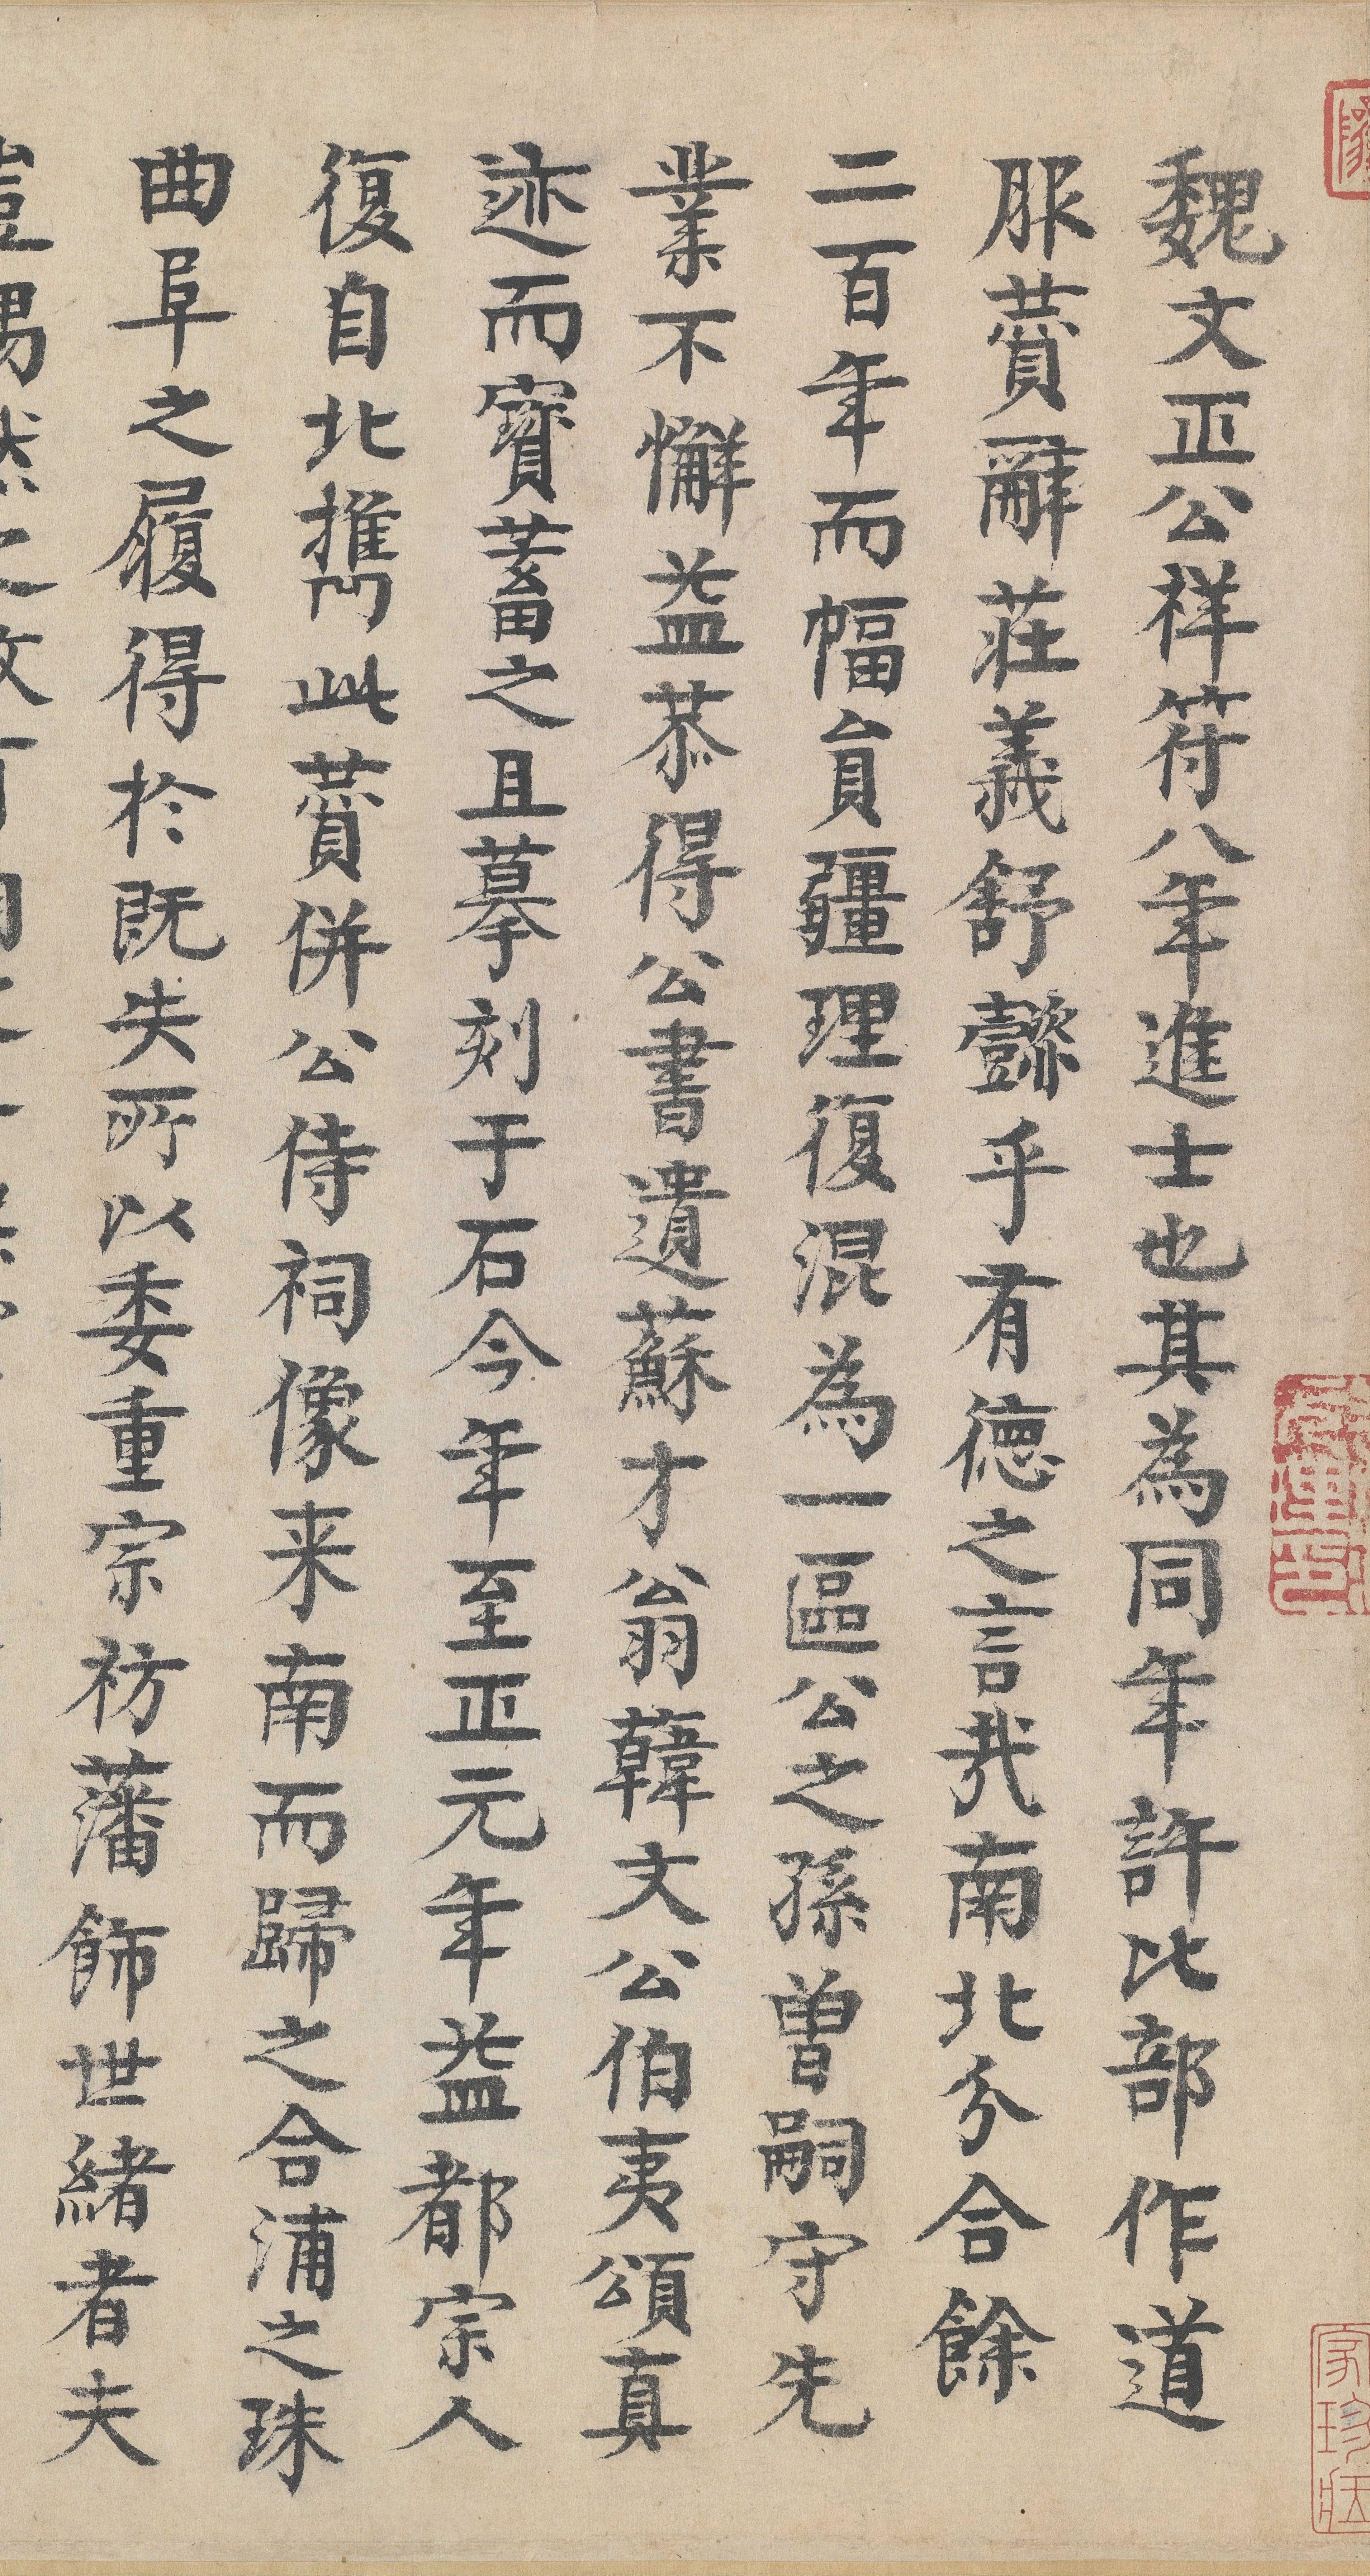 魏文正公祥符八年進士也其為同年許比部作道
服贊辭莊義舒懿乎有德之言哉南北分合餘
二百年而幅員疆理復混為一區公之孫曾嗣守先
業不懈益恭得公書遺蘇才翁韓文公伯夷頌真
迹而寶蓄之且摹刻于石今年至正元年益都宗人
復自北攜此贊併公侍祠像来南而歸之合浦之珠
曲阜之履得於既失所以委重宗祊藩飾世緒者夫
豈偶然之故